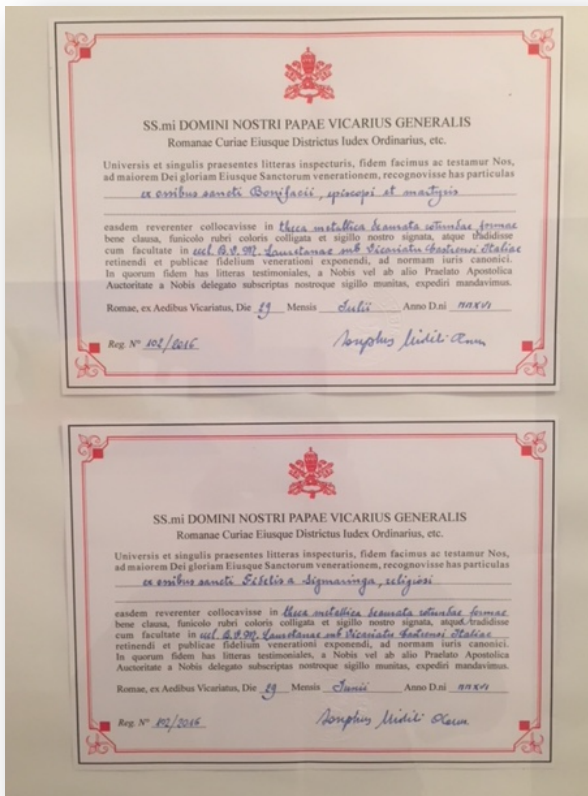 SS.mi DOMINI NOSTRI PAPAE VICARIUS GENERALIS
Romanae Curiae Eiusque Districtus Iudex Ordinarius, etc.
Universis et singulis praesentes litteras inspecturis, fidem facimus ac testamur Nos,
ad maiorem Dei gloriam Eiusque Sanctorum venerationem, recognovisse has particulas
ex ossibus sancti Bonifacii, episcopi et martyris
easdem reverenter collocavisse in theca metallica deaurata rotundae formae
bene clausa, funicolo rubri coloris colligata et sigillo nostro signata, atque tradidisse
cum facultate in eccl. B.V.M. Lauretanae sub Vicariatu Castrensi Italiae
retinendi et publicae fidelium venerationi exponendi, ad normam iuris canonici.
In quorum fidem has litteras testimoniales, a Nobis vel ab alio Praelato Apostolica
Auctoritate a Nobis delegato subscriptas nostroque sigillo munitas, expediri mandavimus.
Romae, ex Aedibus Vicariatus, Die 29 Mensis Iulii Anno D.ni MMXVI
Reg. N° 102/2016
SS.mi DOMINI NOSTRI PAPAE VICARIUS GENERALIS
Romanae Curiae Eiusque Districtus Iudex Ordinarius, etc.
Universis et singulis praesentes litteras inspecturis, fidem facimus ac testamur Nos,
ad maiorem Dei gloriam Eiusque Sanctorum venerationem, recognovisse has particulas
ex ossibus sancti Fidelis a Sigmaringa, religiosi
easdem reverenter collocavisse in theca metallica deaurata rotundae formae
bene clausa, funicolo rubri coloris colligata et sigillo nostro signata, atque tradidisse
cum facultate in eccl. B.V.M. Lauretanae sub Vicariatu Castrensi Italiae
retinendi et publicae fidelium venerationi exponendi, ad normam iuris canonici.
In quorum fidem has litteras testimoniales, a Nobis vel ab alio Praelato Apostolica
Auctoritate a Nobis delegato subscriptas nostroque sigillo munitas, expediri mandavimus.
Romae, ex Aedibus Vicariatus, Die 29 Mensis Iunii Anno D.ni MMXVI
Reg. N° 102/2016